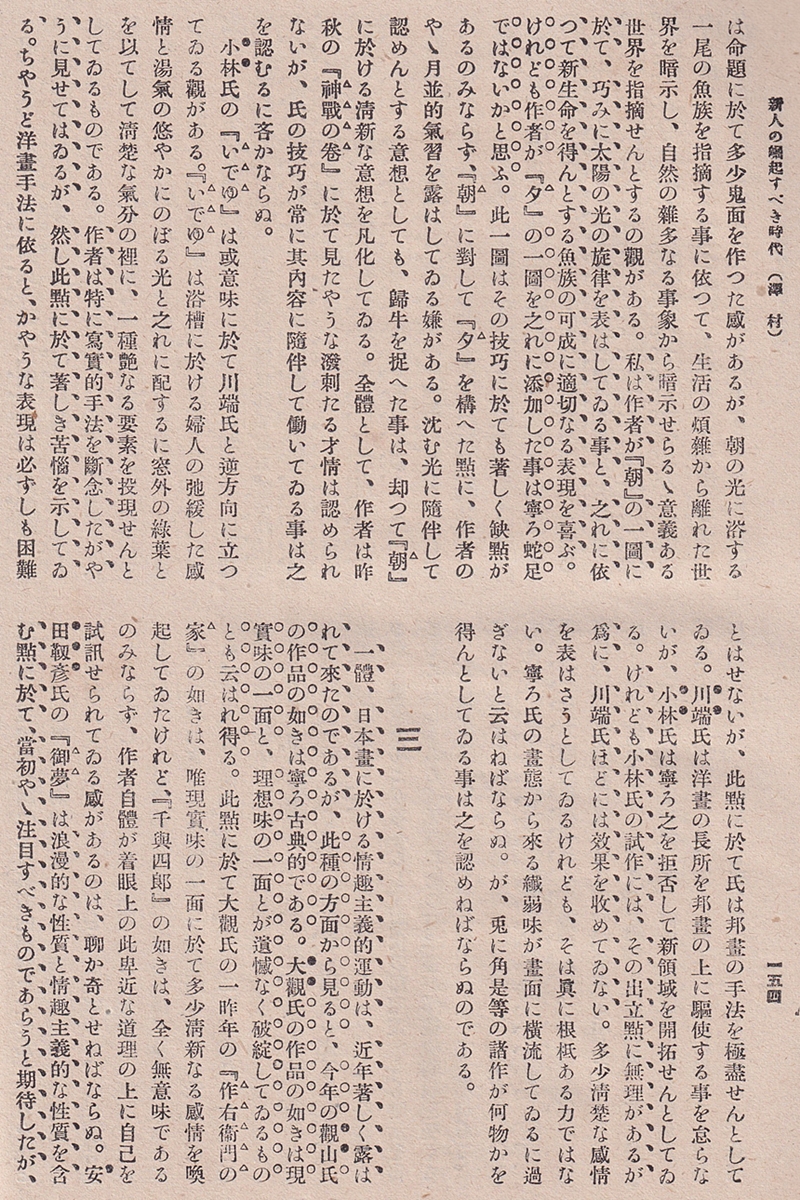 新人の崛起すべき時代(澤村)
一五四
は命題に於て多少鬼面を作つた感があるが、朝の光に浴する
一尾の魚族を指摘する事に依つて、生活の煩雜から離れた世
界を暗示し、自然の雜多なる事象から暗示せらるゝ意義ある
世界を指摘せんとするの觀がある。私は作者が『朝』の一圖に
於て、巧みに太陽の光の旋律を表はしてゐる事と、之れに依
つて新生命を得んとする魚族の可成に適切なる表現を喜ぶ。
けれども作者が『夕』の一圖を之れに添加した事は寧ろ蛇足
ではないかと思ふ。此一圖はその技巧に於ても著しく缺點が
あるのみならず、『朝』に對して『夕』を構へた點に、作者の
やゝ月並的氣習を露はしてゐる嫌がある。沈む光に隨伴して
認めんとする意想としても、歸牛を捉へた事は、却つて『朝』
に於ける淸新な意想を凡化してゐる。全體として、作者は昨
秋の『神戰の卷』に於て見たやうな潑剌たる才情は認められ
ないが、氏の技巧が常に其內容に隨伴して働いてゐる事は之
を認むるに吝かならぬ。
小林氏の『いでゆ』は或意味に於て川端氏と逆方向に立つ
てゐる觀がある。『いでゆ』は浴槽に於ける婦人の弛緩した感
情と湯氣の悠やかにのぼる光と之れに配するに窓外の綠葉と
を以てして淸楚な氣分の裡に、一種艶なる要素を投現せんと
してゐるものである。作者は特に寫實的手法を斷念したがや
うに見せてはゐるが、然し此點に於て著しき苦惱を示してゐ
る。ちやうど洋畫手法に依ると、かやうな表現は必ずしも困難
とはせないが、此點に於て氏は邦畫の手法を極盡せんとして
ゐる。川端氏は洋畫の長所を邦畫の上に驅使する事を怠らな
いが、小林氏は寧ろ之を拒否して新領域を開拓せんとしてゐ
る。けれども小林氏の試作には、その出立點に無理があるが
爲に、川端氏ほどには效果を收めてゐない。多少淸楚な感情
を表はさうとしてゐるけれども、そは眞に根柢ある力ではな
い。寧ろ氏の畫態から來る纎弱味が畫面に橫流してゐるに過
ぎないと云はねばならぬ。が、兎に角是等の諸作が何物かを
得んとしてゐる事は之を認めねばならぬのである。
三
一體、日本畫に於ける情趣主義的運動は、近年著しく露は
れて來たのであるが、此種の方面から見ると、今年の觀山氏
の作品の如きは寧ろ古典的である。大觀氏の作品の如きは現
實味の一面と、理想味の一面とが遺憾なく破綻してゐるもの
とも云はれ得る。此點に於て大觀氏の一昨年の『作右衞門の
家』の如きは、唯現實味の一面に於て多少淸新なる感情を喚
起してゐたけれど、『千與四郎』の如きは、全く無意味である
のみならず、作者自體が着眼上の此卑近な道理の上に自己を
試訊せられてゐる感があるのは、聊か奇とせねばならぬ。安
田靫彥氏の『御夢』は浪漫的な性質と情趣主義的な性質を含
む點に於て、當初やゝ注目すべきものであらうと期待したが、